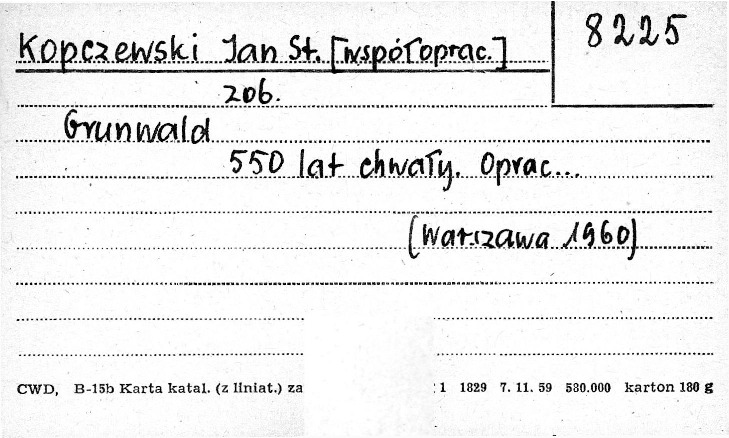 Kopczewski Jan St. [współoprac.]
8225
zob.
Grunwald
550 lat chwały. Oprac...
(Warszawa 1960)
CWD, B-15b Karta katal. (z liniat.) za 1 1829 7. 11. 59 530.000 karton 180 g